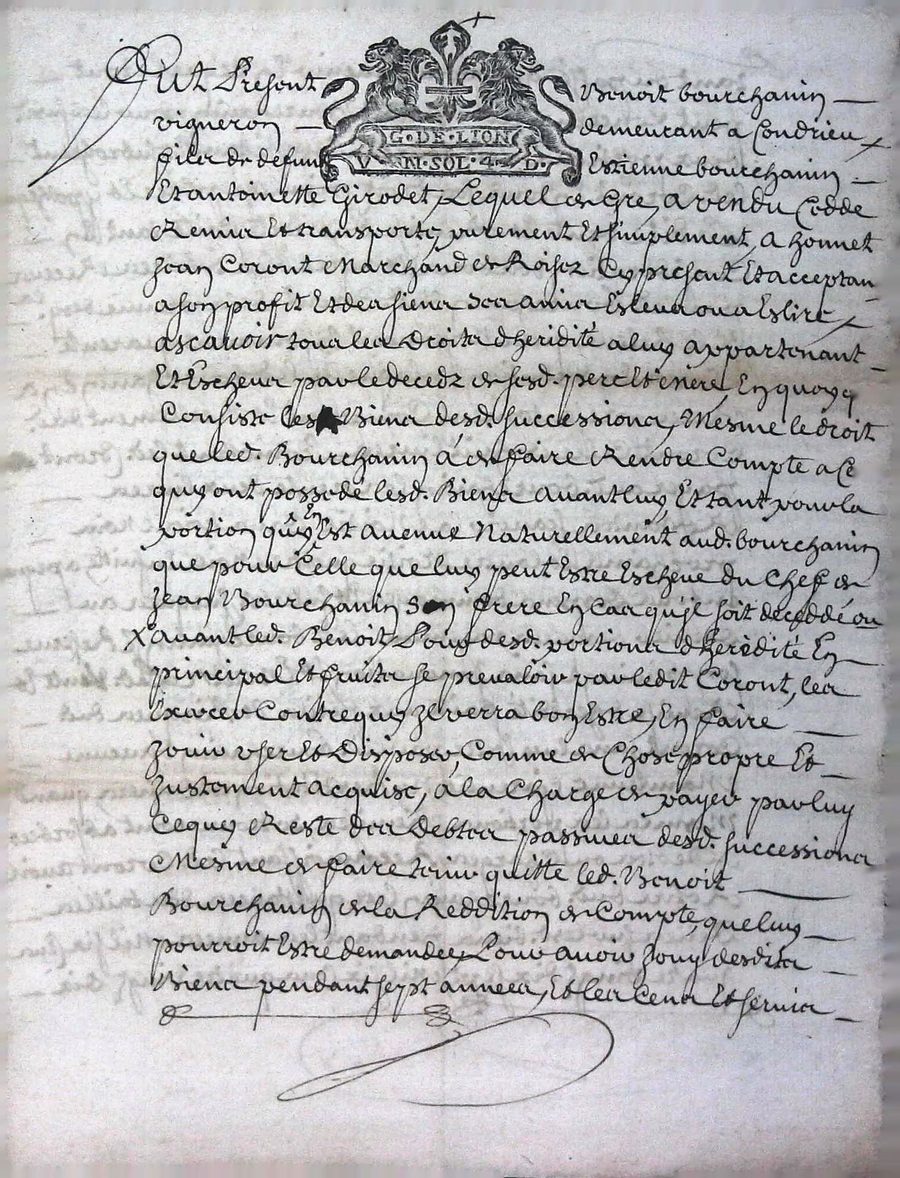 Fut Present Benoit bourchanin
vigneron demeurant a Condrieu
G·DE·LION
filz de defunt Estienne bourchanin
V N·SOL·4·D·
Et antoinette Girodet, Lequel de Gre, a vendu Cedde
Remis Et transporte, purement Et simplement, a honnet
Jean Coront Marchand de Roisez Cy present Et acceptan
a son profit Et de siens ses amis Esleus ou a Eslire
ascavoir tous les Droits d'heridité a luy appartenant
Et Escheus par le decedz de sesd. pere Et mere, En quoy q
Consiste les Biens desd. successions, Mesme le droit
que led. Bourchanin a de faire Rendre Compte a Ce
quy ont possedé lesd. Biens avant luy, Et tant pour la
portion quy En Est avenue Naturellement aud. bourchanin
que pour Celle que luy peut Estre Escheue du Chef de
Jean Bourchanin son frere En Cas qu'il soit deceddé ou
X avant led. Benoit, Pour desd. portions d'heridité En
principal Et fruits se prevaloir par ledit Coront, les
Exercer Contre quy Il verra bon Estre, En faire
Jouir user Et Disposer, Comme de Chose propre Et
Justement acquise, a la Charge de payer par luy
Ce quy Reste des Debtes passives desd. successions
Mesme de faire tenir quitte led. Benoit
Bourchanin de la Reddition de Compte, que luy
pourroit Estre demandée, Pour avoir Jouy desdits
Biens pendant sept années, Et les Cens Et servis